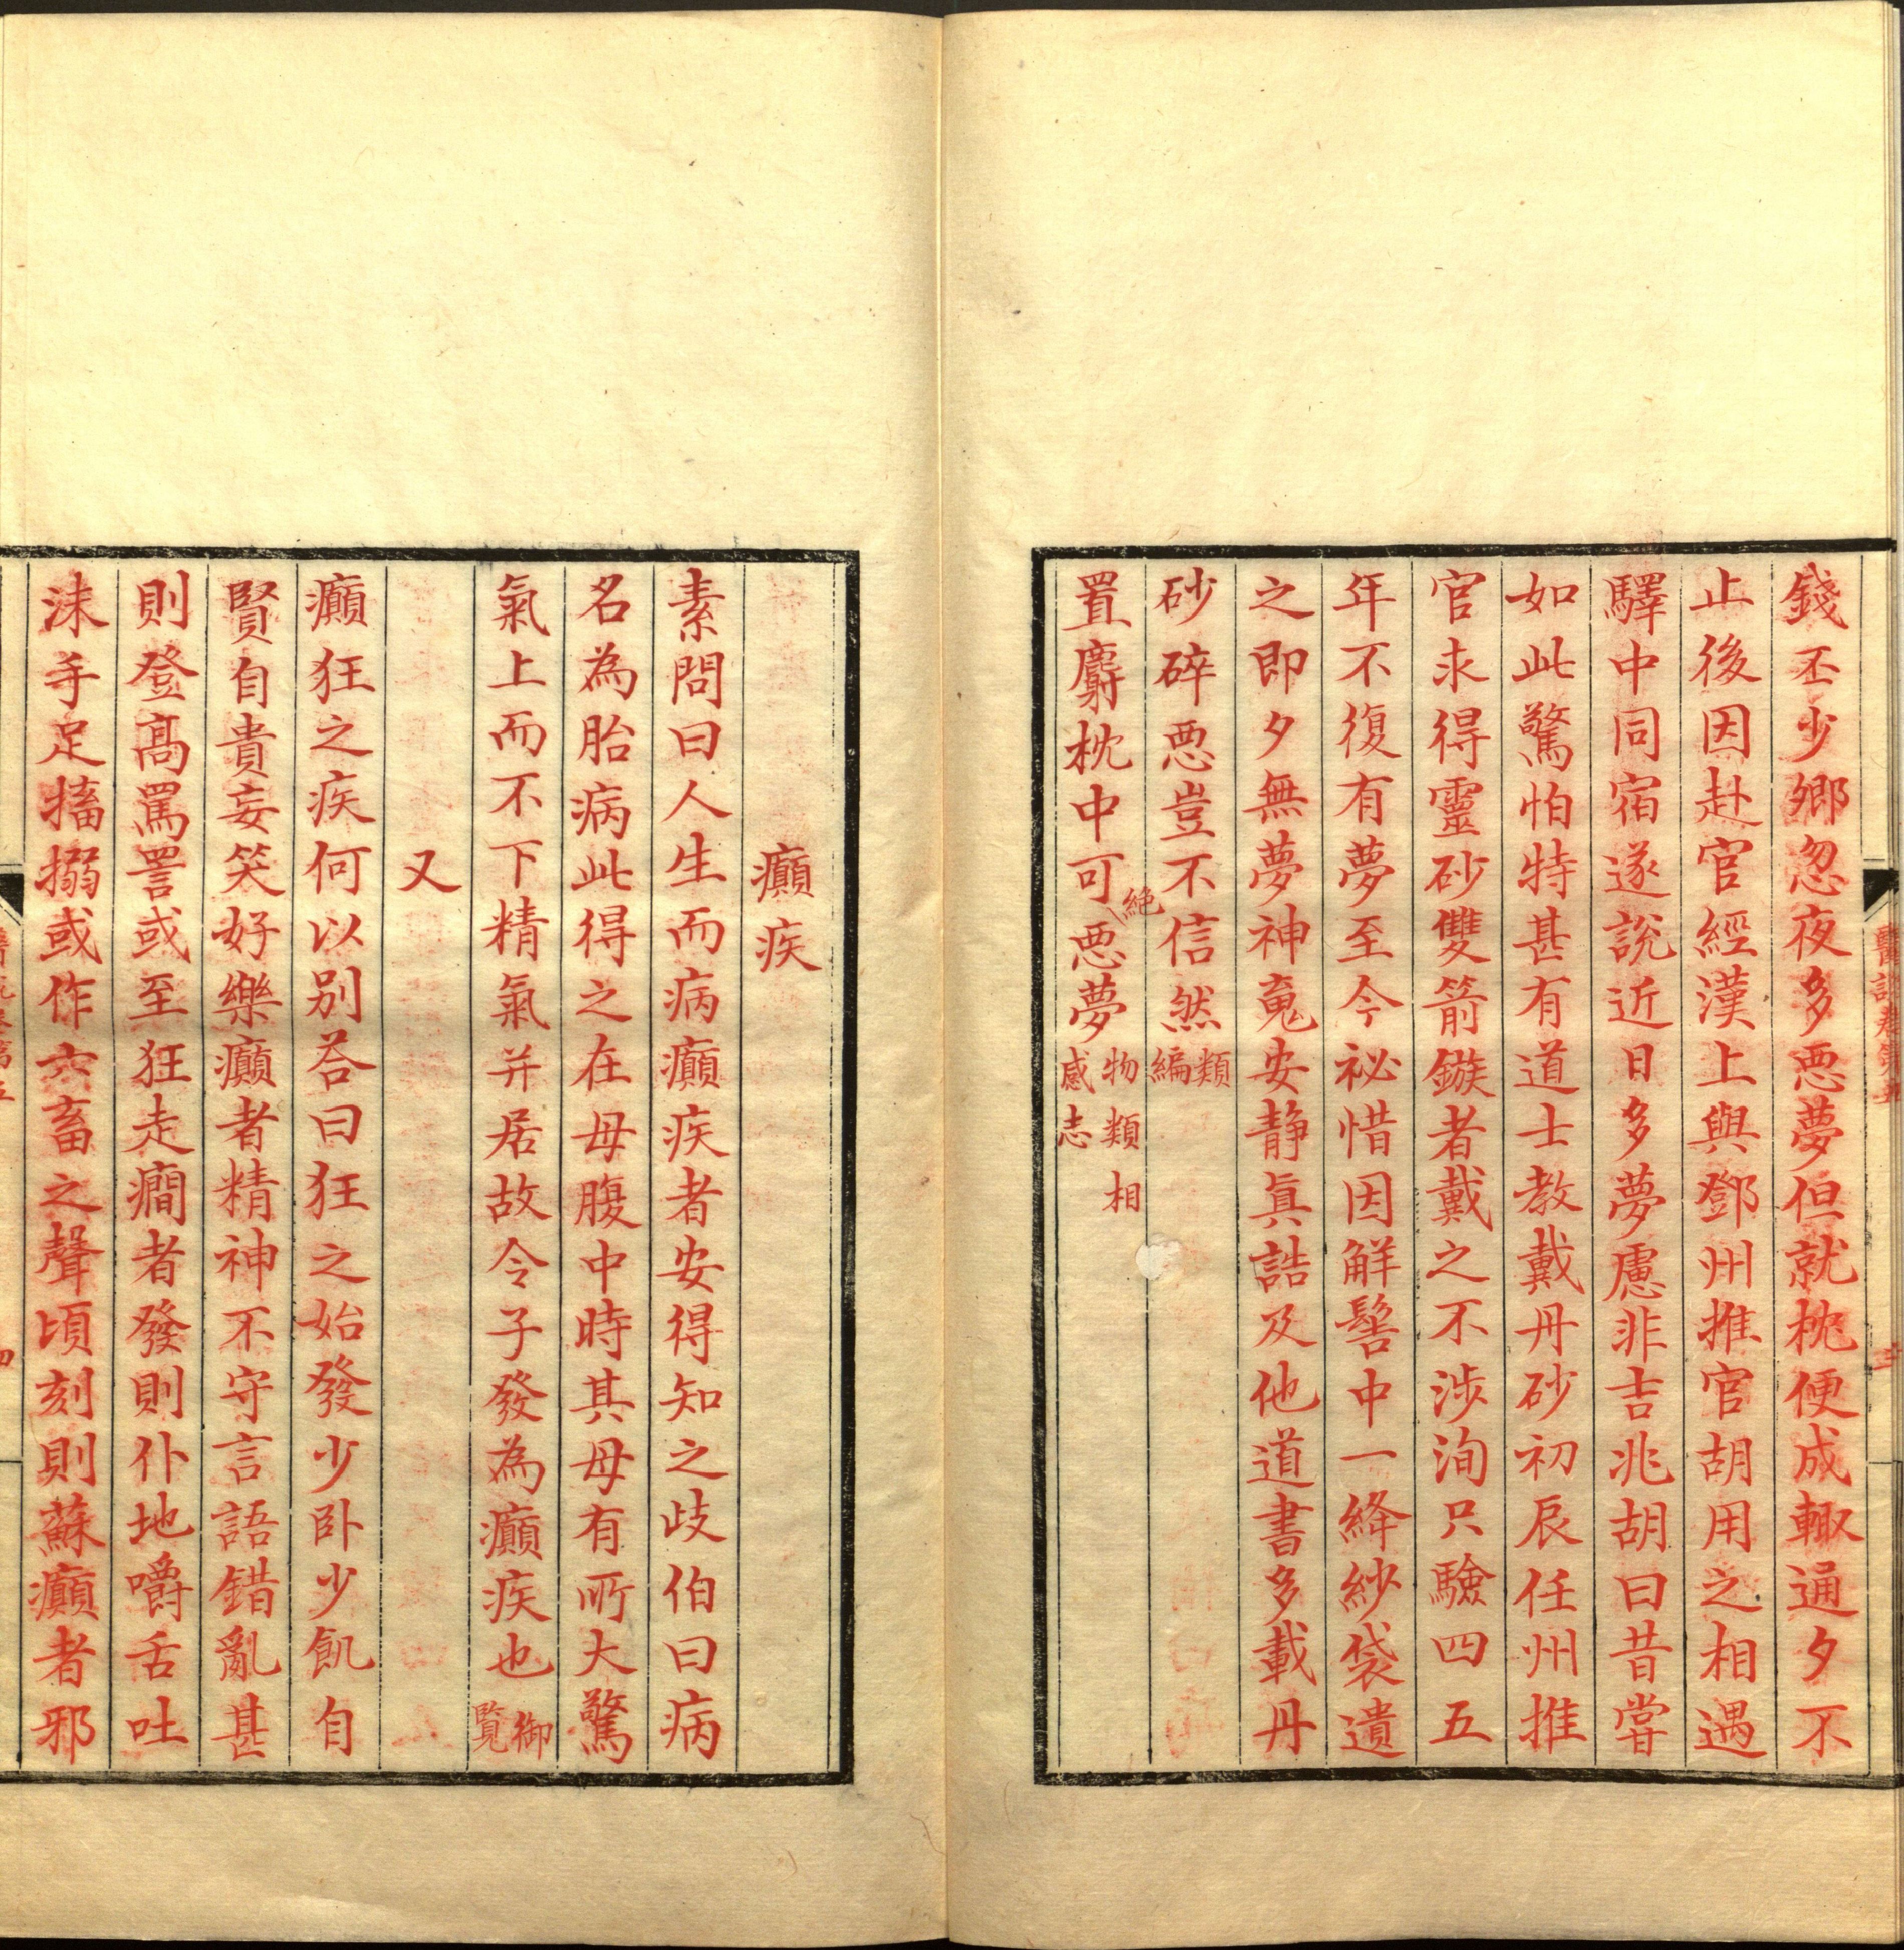 錢丕少卿忽夜多惡夢但就枕便成輙通夕不
止後因赴官經漢上與鄧州推官胡用之相遇
驛中同宿遂說近日多夢慮非吉兆胡曰昔嘗
如此驚怕特甚有道士教戴丹砂初辰任州推
官求得靈砂雙箭鏃者戴之不涉洵只驗四五
年不復有夢至今祕惜因解髻中一絳紗袋遺
之即夕無夢神䰟安靜眞誥及他道書多載丹
砂碎惡豈不信然類編
置麝枕中可絕惡夢物類相感志
癲疾
素問曰人生而病癲疾者安得知之歧伯曰病
名為胎病此得之在母腹中時其母有所大驚
氣上而不下精氣并居故令子發為癲疾也御覽
又
癲狂之疾何以別答曰狂之始發少卧少飢自
賢自貴妄笑好樂癲者精神不守言語錯亂甚
則登髙罵詈或至狂走癎者發則仆地嚼舌吐
沬手足搐搦或作六畜之聲頃刻則蘇癲者邪
醫說卷第五
三
四